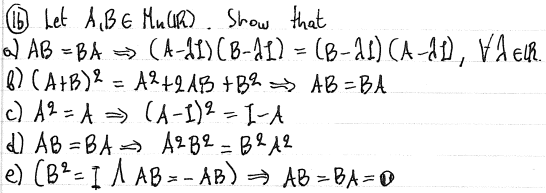 (16) Let A,B ∈ Mn(ℝ). Show that
a) AB = BA ⟹ (A-λI)(B-λI) = (B-λI)(A-λI), ∀λ∈ℝ.
b) (A+B)² = A²+2AB+B² ⟹ AB=BA
c) A² = A ⟹ (A-I)² = I-A
d) AB = BA ⟹ A²B² = B²A²
e) (B² = I ∧ AB = -AB) ⟹ AB = BA = 0